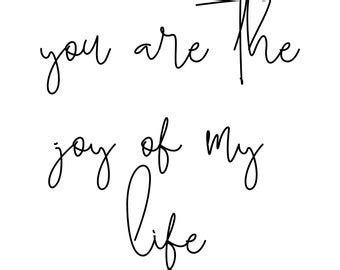 you are The
joy of my
life